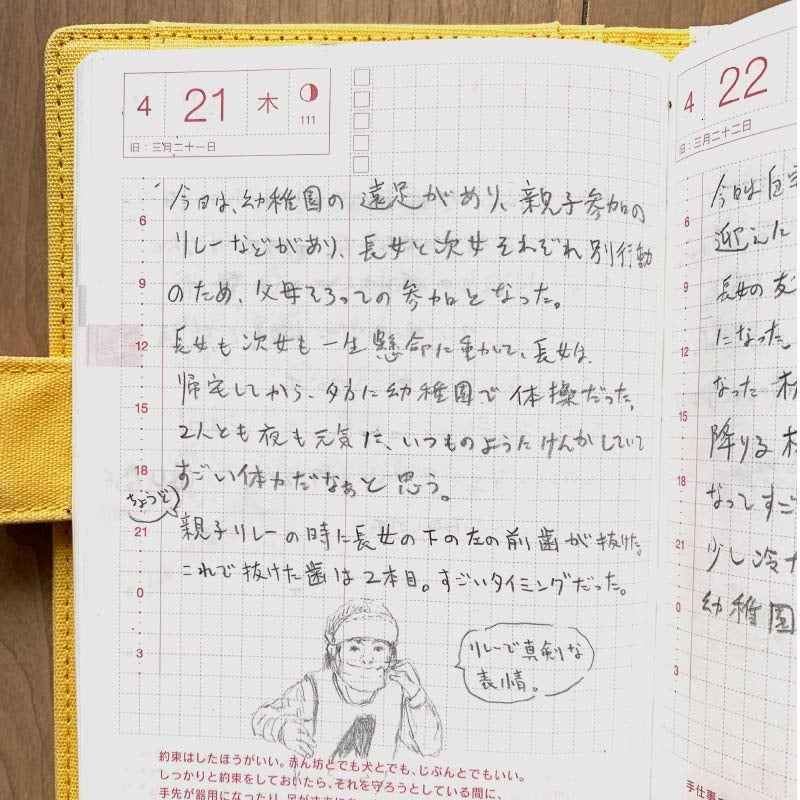 4 21 木
111
旧：三月二十一日
今日は、幼稚園の遠足があり、親子参加の
リレーなどがあり、長女と次女それぞれ別行動
のため、父母そろっての参加となった。
長女も次女も一生懸命に動いて、長女は、
帰宅してから、夕方に幼稚園で体操だった。
2人とも夜も元気に、いつものようにけんかしていて
すごい体力だなぁと思う。
ちょうど
親子リレーの時に長女の下の左の前歯が抜けた。
これで抜けた歯は2本目。すごいタイミングだった。
リレーで真剣な
表情。
6
9
12
15
18
21
0
3
約束はしたほうがいい。赤ん坊とでも犬とでも、じぶんとでもいい。
しっかりと約束をしておいたら、それを守ろうとしている間に、
手先が器用になったり、足がすこ
4 22
旧：三月二十二日
今日は自宅
迎えに
長女の友
になった。
なった
降りる
なってすご
少し冷
幼稚園
6
9
12
15
18
21
0
3
手仕事